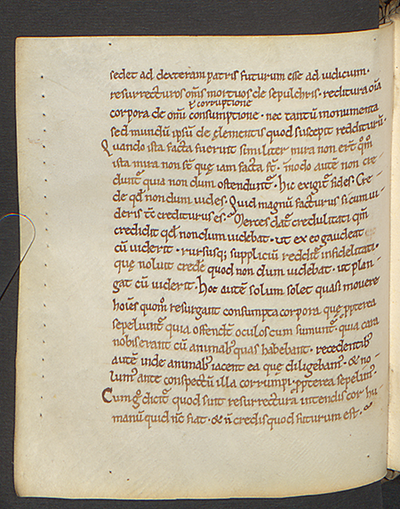 sedet ad dexteram patris futurum esse ad iudicium.
resurrecturos om̄s mortuos de sepulchris. redditura oīa
& corruptione
corpora de omī consumptione. nec tantū monumenta
sed mundū ipsū de elementis quod suscepit redditurū.
Quando ista facta fuerint similiter mira non ert̄ qm̄
ista mira non st̄ quę iam facta st̄. modo autē non cre
dunt̄ quia non dum ostendunt̄. hic exigit̄ fides. Cre
de qd̄ non dum vides. Quid magnū facturus si cum ui
deris tc̄ crediturus es. Merces dat̄ credulitati qm̄
credidit qd̄ non dum uidebat. ut ex eo gaudeat
cū uiderit. rursusq; suppliciū reddit̄ infidelitati.
quę noluit credere quod non dum uidebat. ut plan
gat cū uiderit. Hoc autē solum solet quasi mouere
hoīes quom̄ resurgant consumpta corpora quę ꝓpterea
sepeliunt̄ quia offendit̄ oculos cum sumunt̄. quia cara
nobis erant cū animab; quas habebant. recedentib;
autē inde animab; iacent ea quę diligebam̄. & no
lum̄ ante conspectū illa corrumpi. ꝓpterea sepelim̄.
Cum g̊ dicit̄ quod sunt resurrectura intendis cor hu
manū quid nc̄ fiat. & n̄ credis quod futurum est.